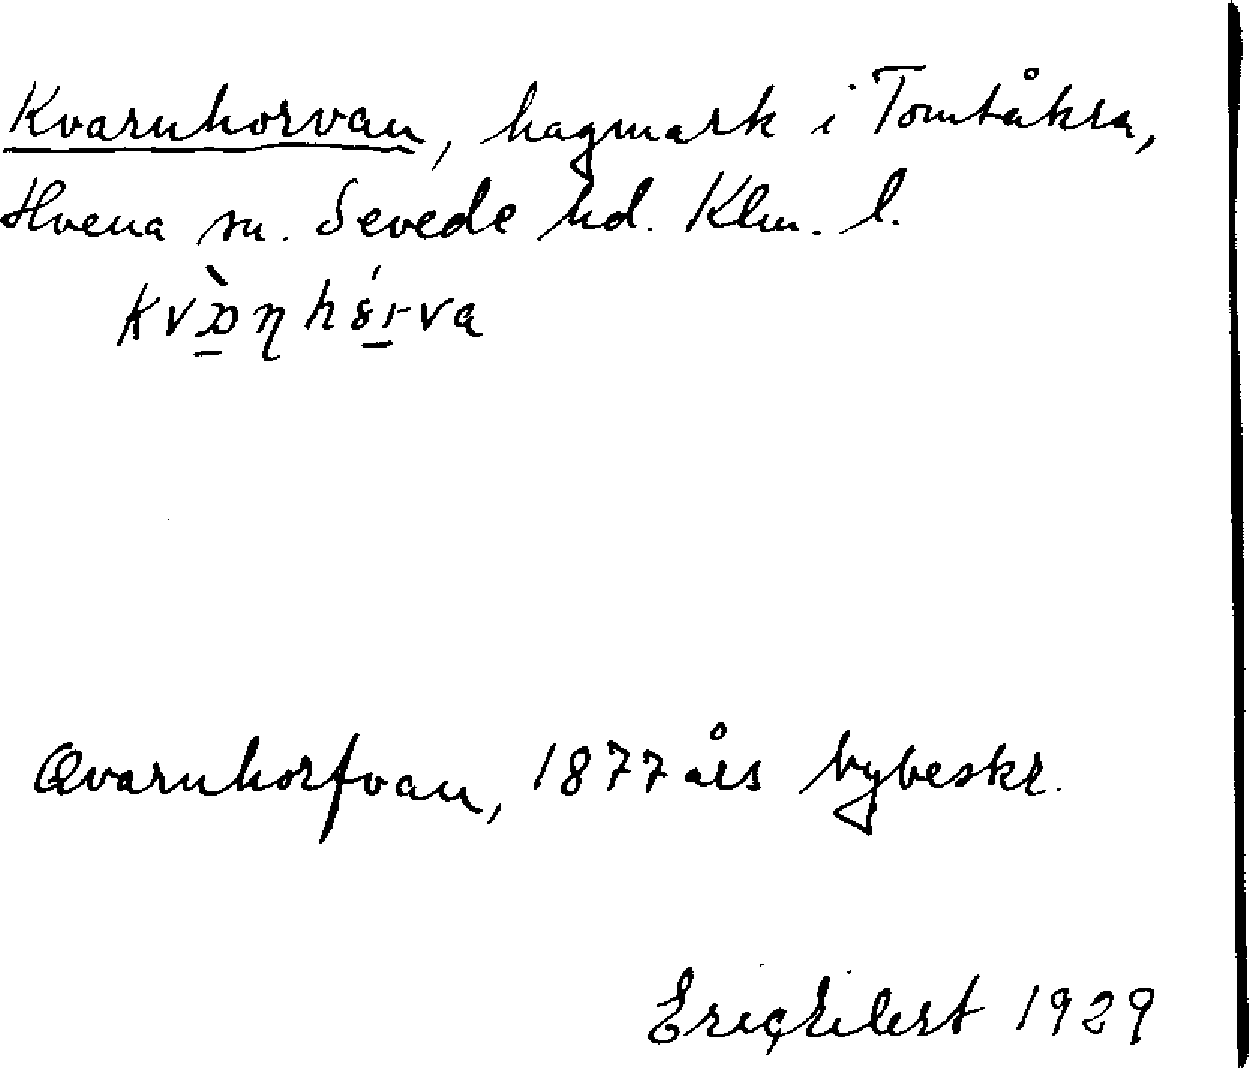 Kvarnhorvan, hagmark i Tomtåkra,
Hvena sn. Sevede hd. Klm. l.
Qvarnhorfvan, 1877 års bybeskr.
1929